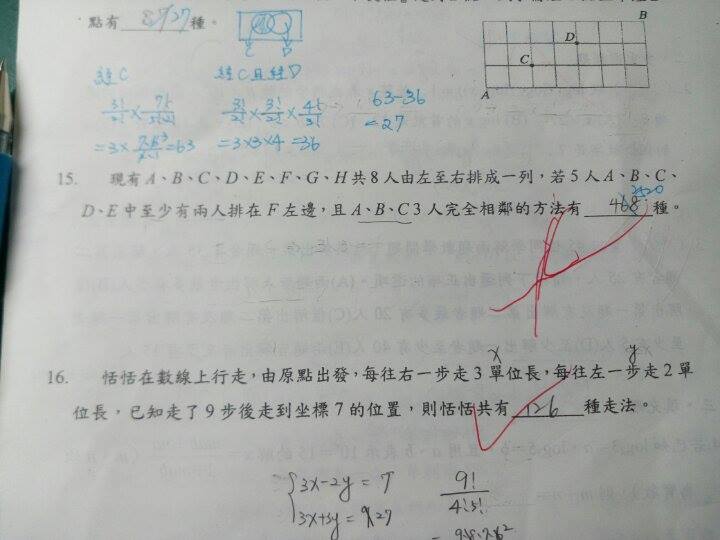 點有 8127 種。
B
D
C
A
C D
經C 經C且經D
3!/2! × 7!/5!2! 3!/2! × 3!/2! × 4!/3! 63-36
= 3 × = 63 = 3×3×4 = 36 = 27
15. 現有A、B、C、D、E、F、G、H共8人由左至右排成一列,若5人A、B、C、
2520
D、E中至少有兩人排在F左邊,且A、B、C 3人完全相鄰的方法有 468 種。
x y
16. 恬恬在數線上行走,由原點出發,每往右一步走3單位長,每往左一步走2單
位長,已知走了9步後走到坐標7的位置,則恬恬共有 126 種走法。
3x-2y = 7 9!/4!5!
3x+3y = 27